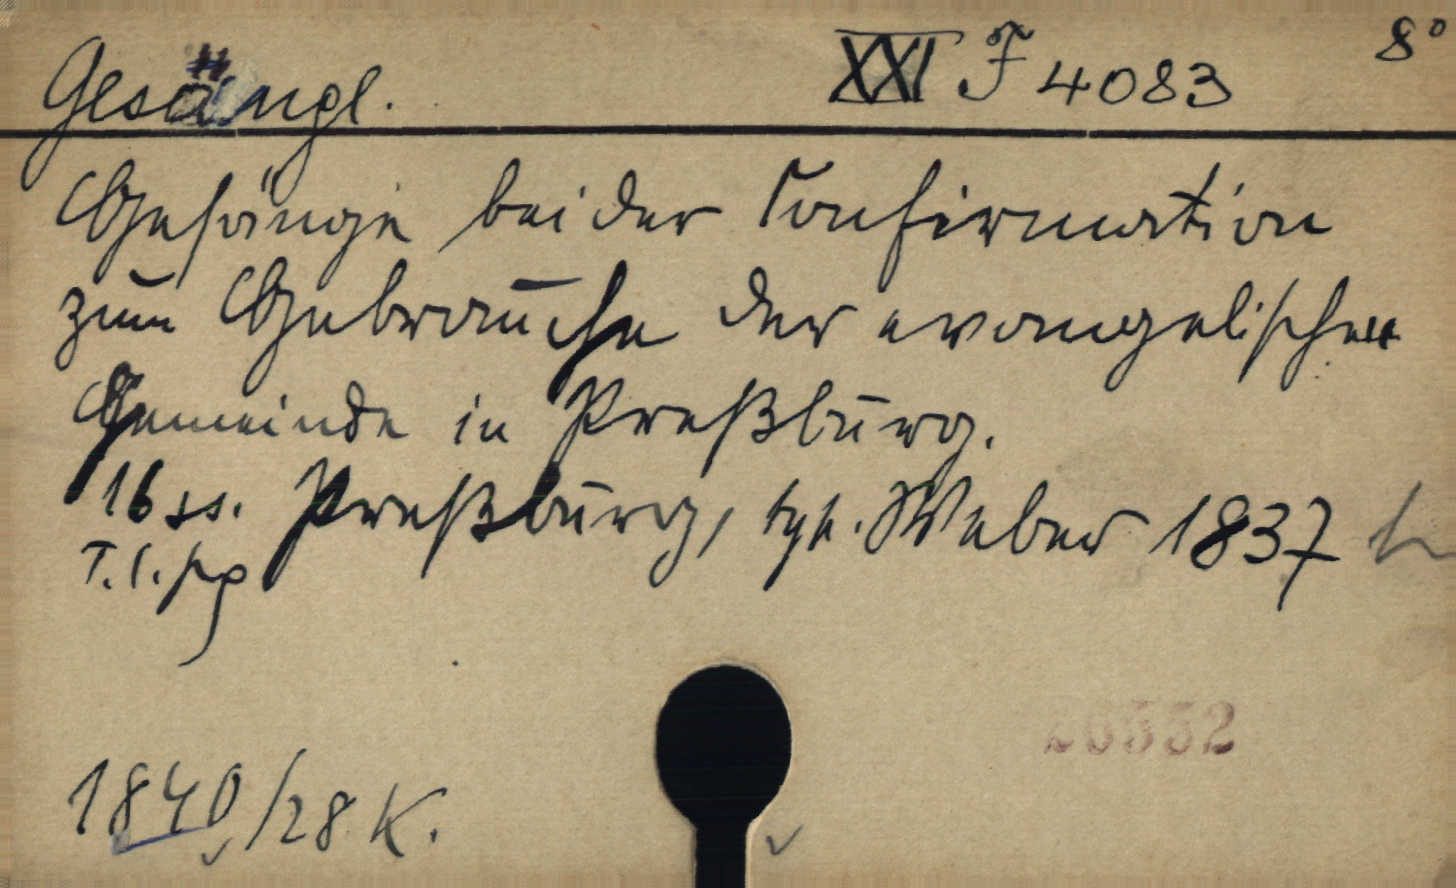 Gesängl. XXI F 4083 8°
Gesänge bei der Confirmation
zum Gebrauche der evangelischen
Gemeinde in Preßburg.
16 ss. Preßburg, typ. Weber 1837
T. l. pg
20552
1840/28 K.